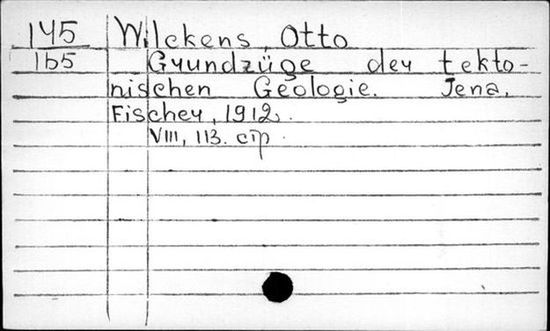 145 Wilckens, Otto
165 Grundzüge der tekto-
nischen Geologie. Jena,
Fischer, 1912.
VIII, 113. стр.